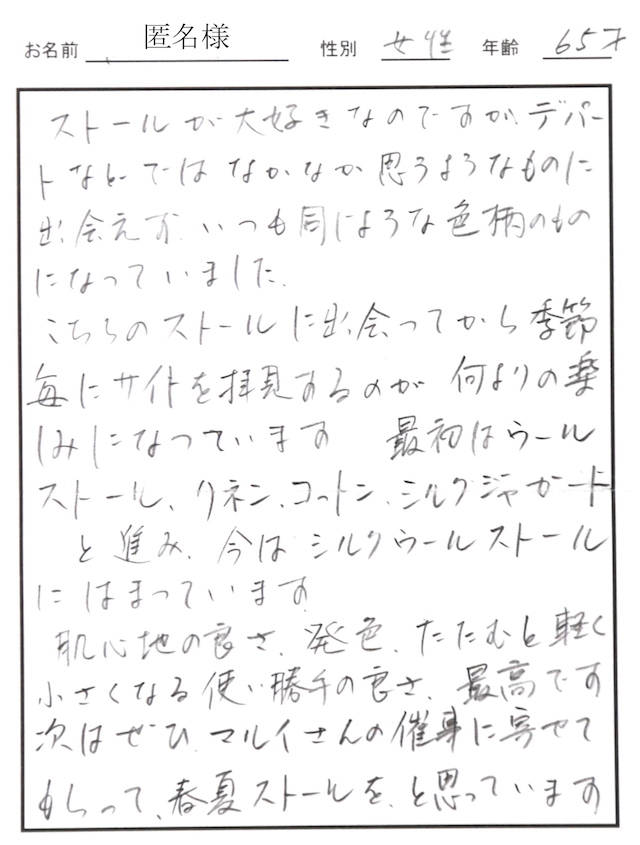 お名前 匿名様 性別 女性 年齢 65才
ストールが大好きなのですが、デパー
トなどではなかなか思うようなものに
出会えず、いつも同じような色柄のもの
になっていました。
こちらのストールに出会ってから季節
毎にサイトを拝見するのが何よりの楽
しみになっています 最初はウール
ストール、リネン、コットン、シルクジャガード
と進み、今はシルクウールストール
にはまっています
肌心地の良さ、発色、たたむと軽く
小さくなる使い勝手の良さ、最高です
次はぜひ、マルイさんの催事に寄せて
もらって、春夏ストールを、と思っています